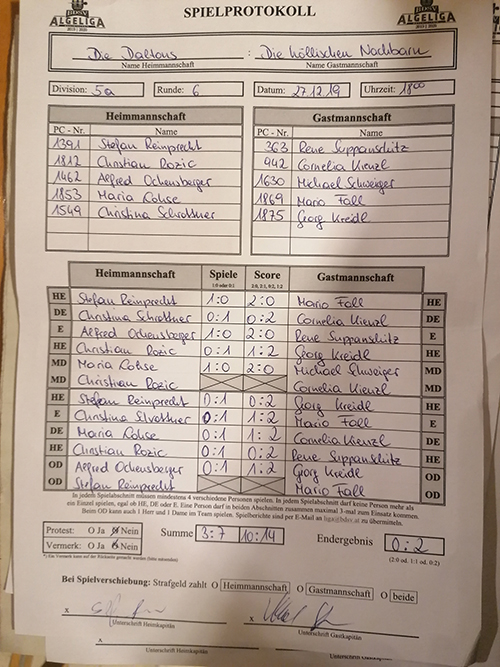 BDSV
ALGELIGA
2019 | 2020
SPIELPROTOKOLL
ALGELIGA
2019 | 2020
Die Daltons : Die höllischen Nachbarn
Name Heimmannschaft Name Gastmannschaft
Division: 5a Runde: 6 Datum: 27.12.19 Uhrzeit: 18⁰⁰
Heimmannschaft Gastmannschaft
PC - Nr. Name PC - Nr. Name
1391 Stefan Reinprecht 363 Rene Suppanschitz
1812 Christian Rozic 942 Cornelia Kienzl
1462 Alfred Ochensberger 1630 Michael Schweiger
1853 Maria Lohse 1869 Mario Fall
1549 Christina Schrottner 1875 Georg Kreidl
Heimmannschaft Spiele Score Gastmannschaft
1:0 oder 0:1 2:0, 2:1, 0:2, 1:2
HE Stefan Reinprecht 1:0 2:0 Mario Fall HE
DE Christina Schrottner 0:1 0:2 Cornelia Kienzl DE
E Alfred Ochensberger 1:0 2:0 Rene Suppanschitz E
HE Christian Rozic 0:1 1:2 Georg Kreidl HE
MD Maria Lohse 1:0 2:0 Michael Schweiger MD
MD Christian Rozic Cornelia Kienzl MD
HE Stefan Reinprecht 0:1 0:2 Georg Kreidl HE
E Christina Schrottner 0:1 1:2 Mario Fall E
DE Maria Lohse 0:1 1:2 Cornelia Kienzl DE
HE Christian Rozic 0:1 0:2 Rene Suppanschitz HE
OD Alfred Ochensberger 0:1 1:2 Georg Kreidl OD
OD Stefan Reinprecht Mario Fall OD
In jedem Spielabschnitt müssen mindestens 4 verschiedene Personen spielen. In jedem Spielabschnitt darf keine Person mehr als
ein Einzel spielen, egal ob HE, DE oder E. Eine Person darf in beiden Abschnitten zusammen maximal 3-mal zum Einsatz kommen.
Beim OD kann auch 1 Herr und 1 Dame im Team spielen. Spielberichte sind per E-Mail an liga@bdsv.at zu übermitteln.
Protest: O Ja O Nein
Vermerk: O Ja O Nein
Summe 3:7 10:14 Endergebnis 0:2
(2:0 od. 1:1 od. 0:2)
*) Ein Vermerk kann auf der Rückseite gemacht werden (bitte ankreuzen)
Bei Spielverschiebung: Strafgeld zahlt O Heimmannschaft O Gastmannschaft O beide
x x
Unterschrift Heimkapitän Unterschrift Gastkapitän
x
Unterschrift Heimkapitän Unterschrift Gastkapitän